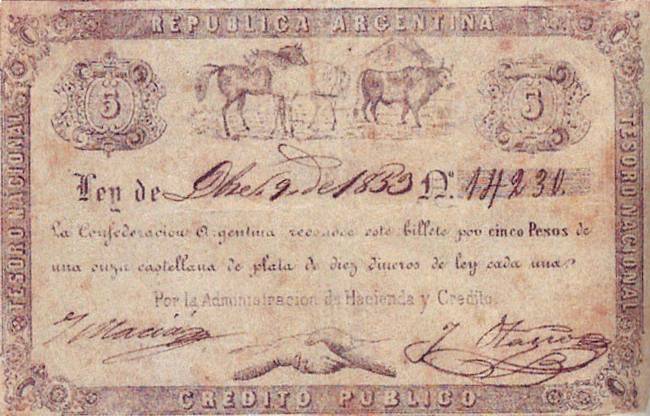 REPUBLICA ARGENTINA
5
5
TESORO NACIONAL
TESORO NACIONAL
Ley de Dbe. 9 de 1853 Nº. 14230.
La Confederacion Argentina reconoce este billete por cinco Pesos de
una onza castellana de plata de diez dineros de ley cada uno.
Por la Administracion de Hacienda y Credito.
CREDITO PUBLICO